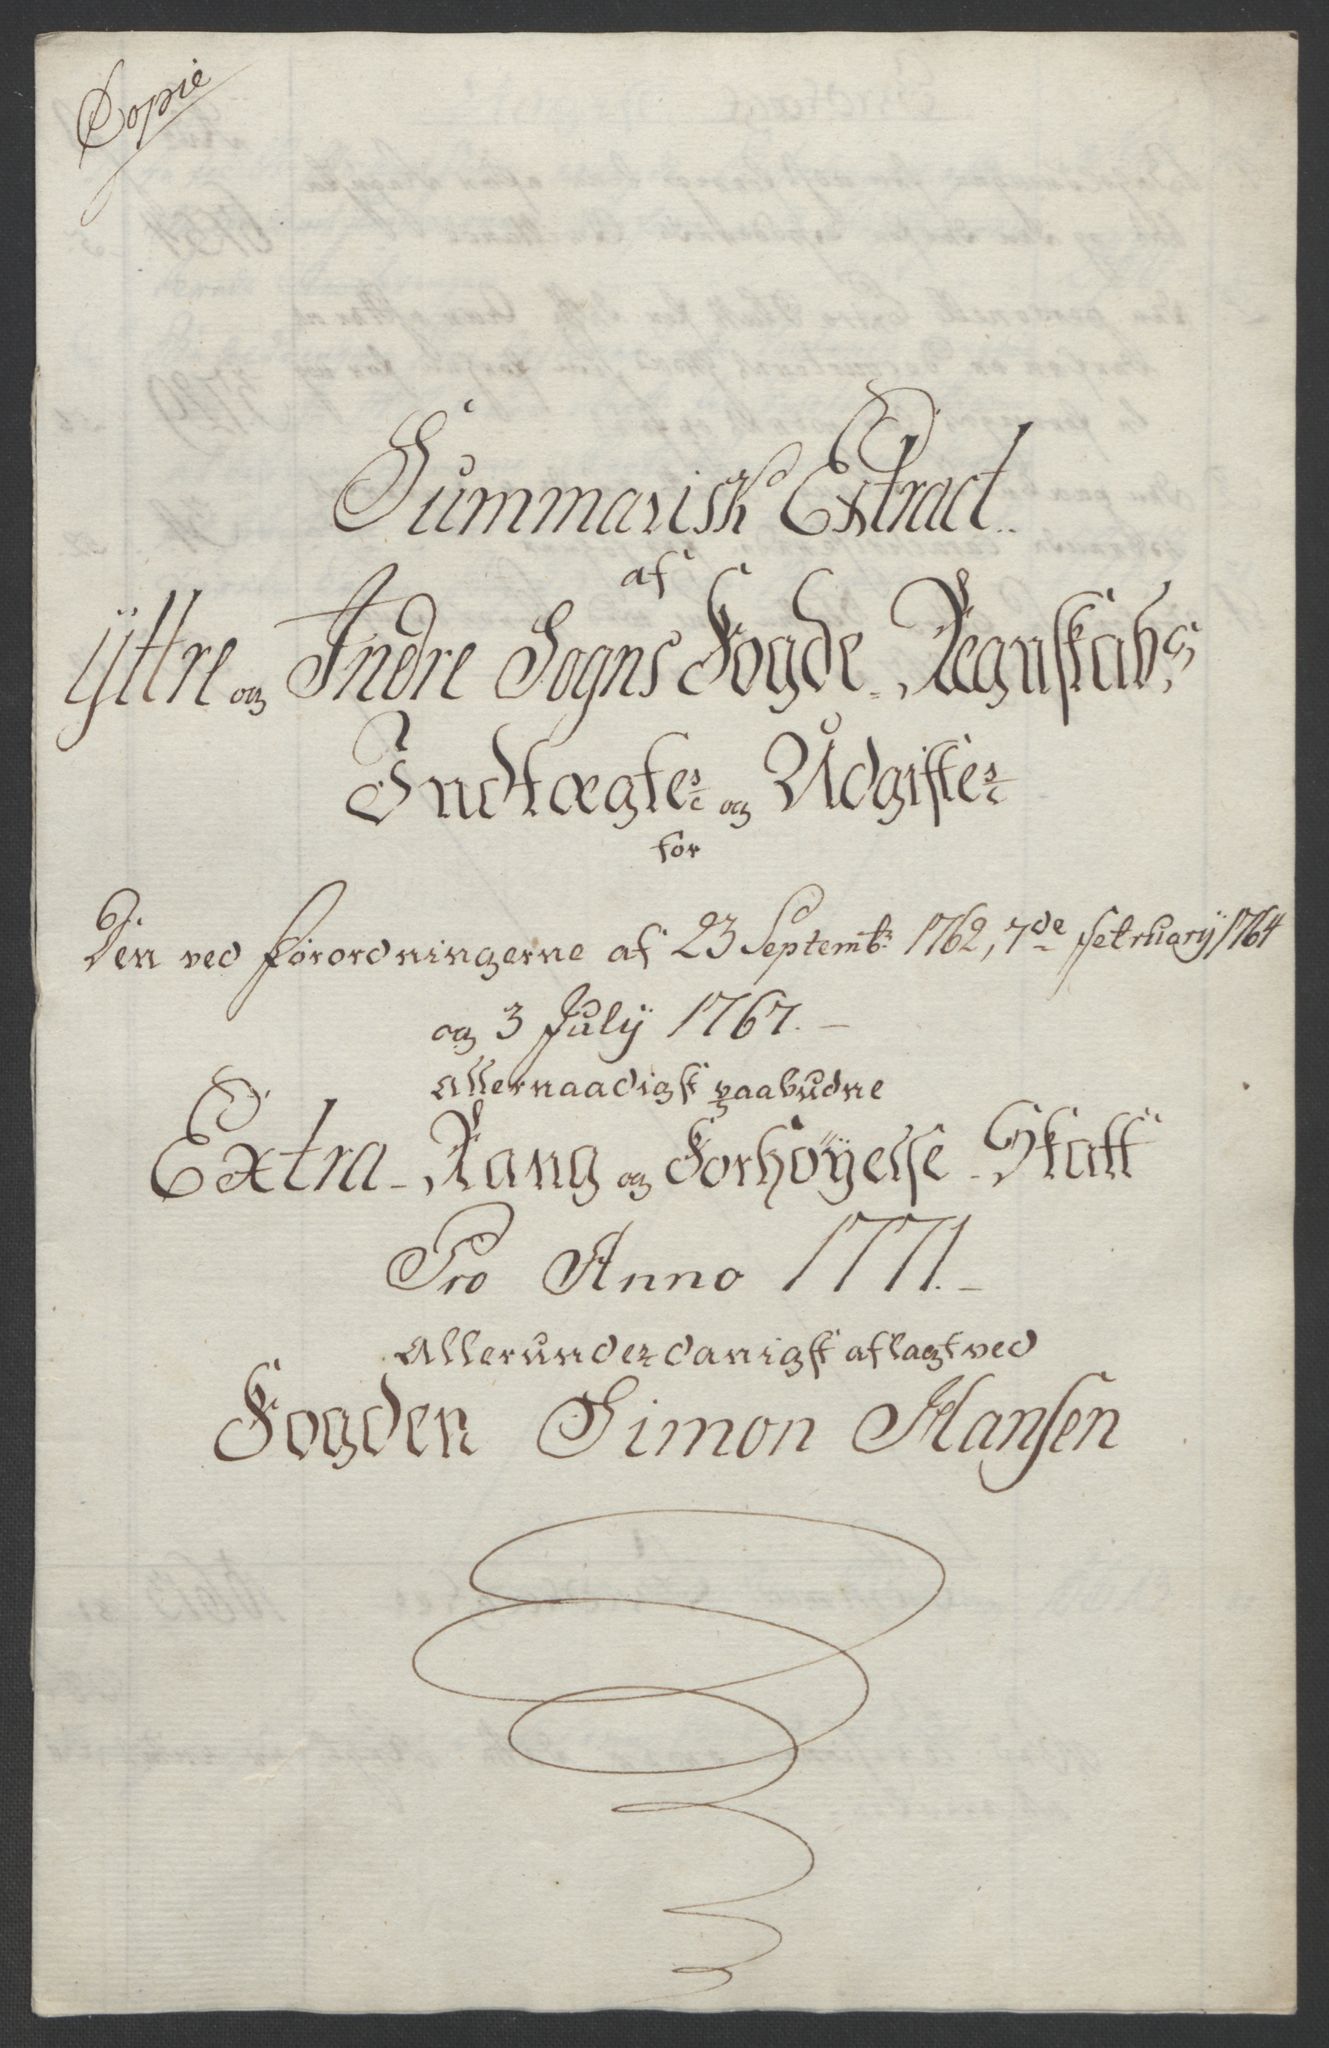 Copie
Summarisk Extract
af
Yttre og Indre Sogns Fogde-Regnskabs
Indtægter og Udgifter
for
Den ved Forordningerne af 23 Septembr 1762, 7de february 1764
og 3 July 1767.
Allernaadigst paabudne
Extra-Rang og Forhøyelse-Skatt
Pro Anno 1771.
Allerunderdanigst aflagt ved
Fogden Simon Hansen